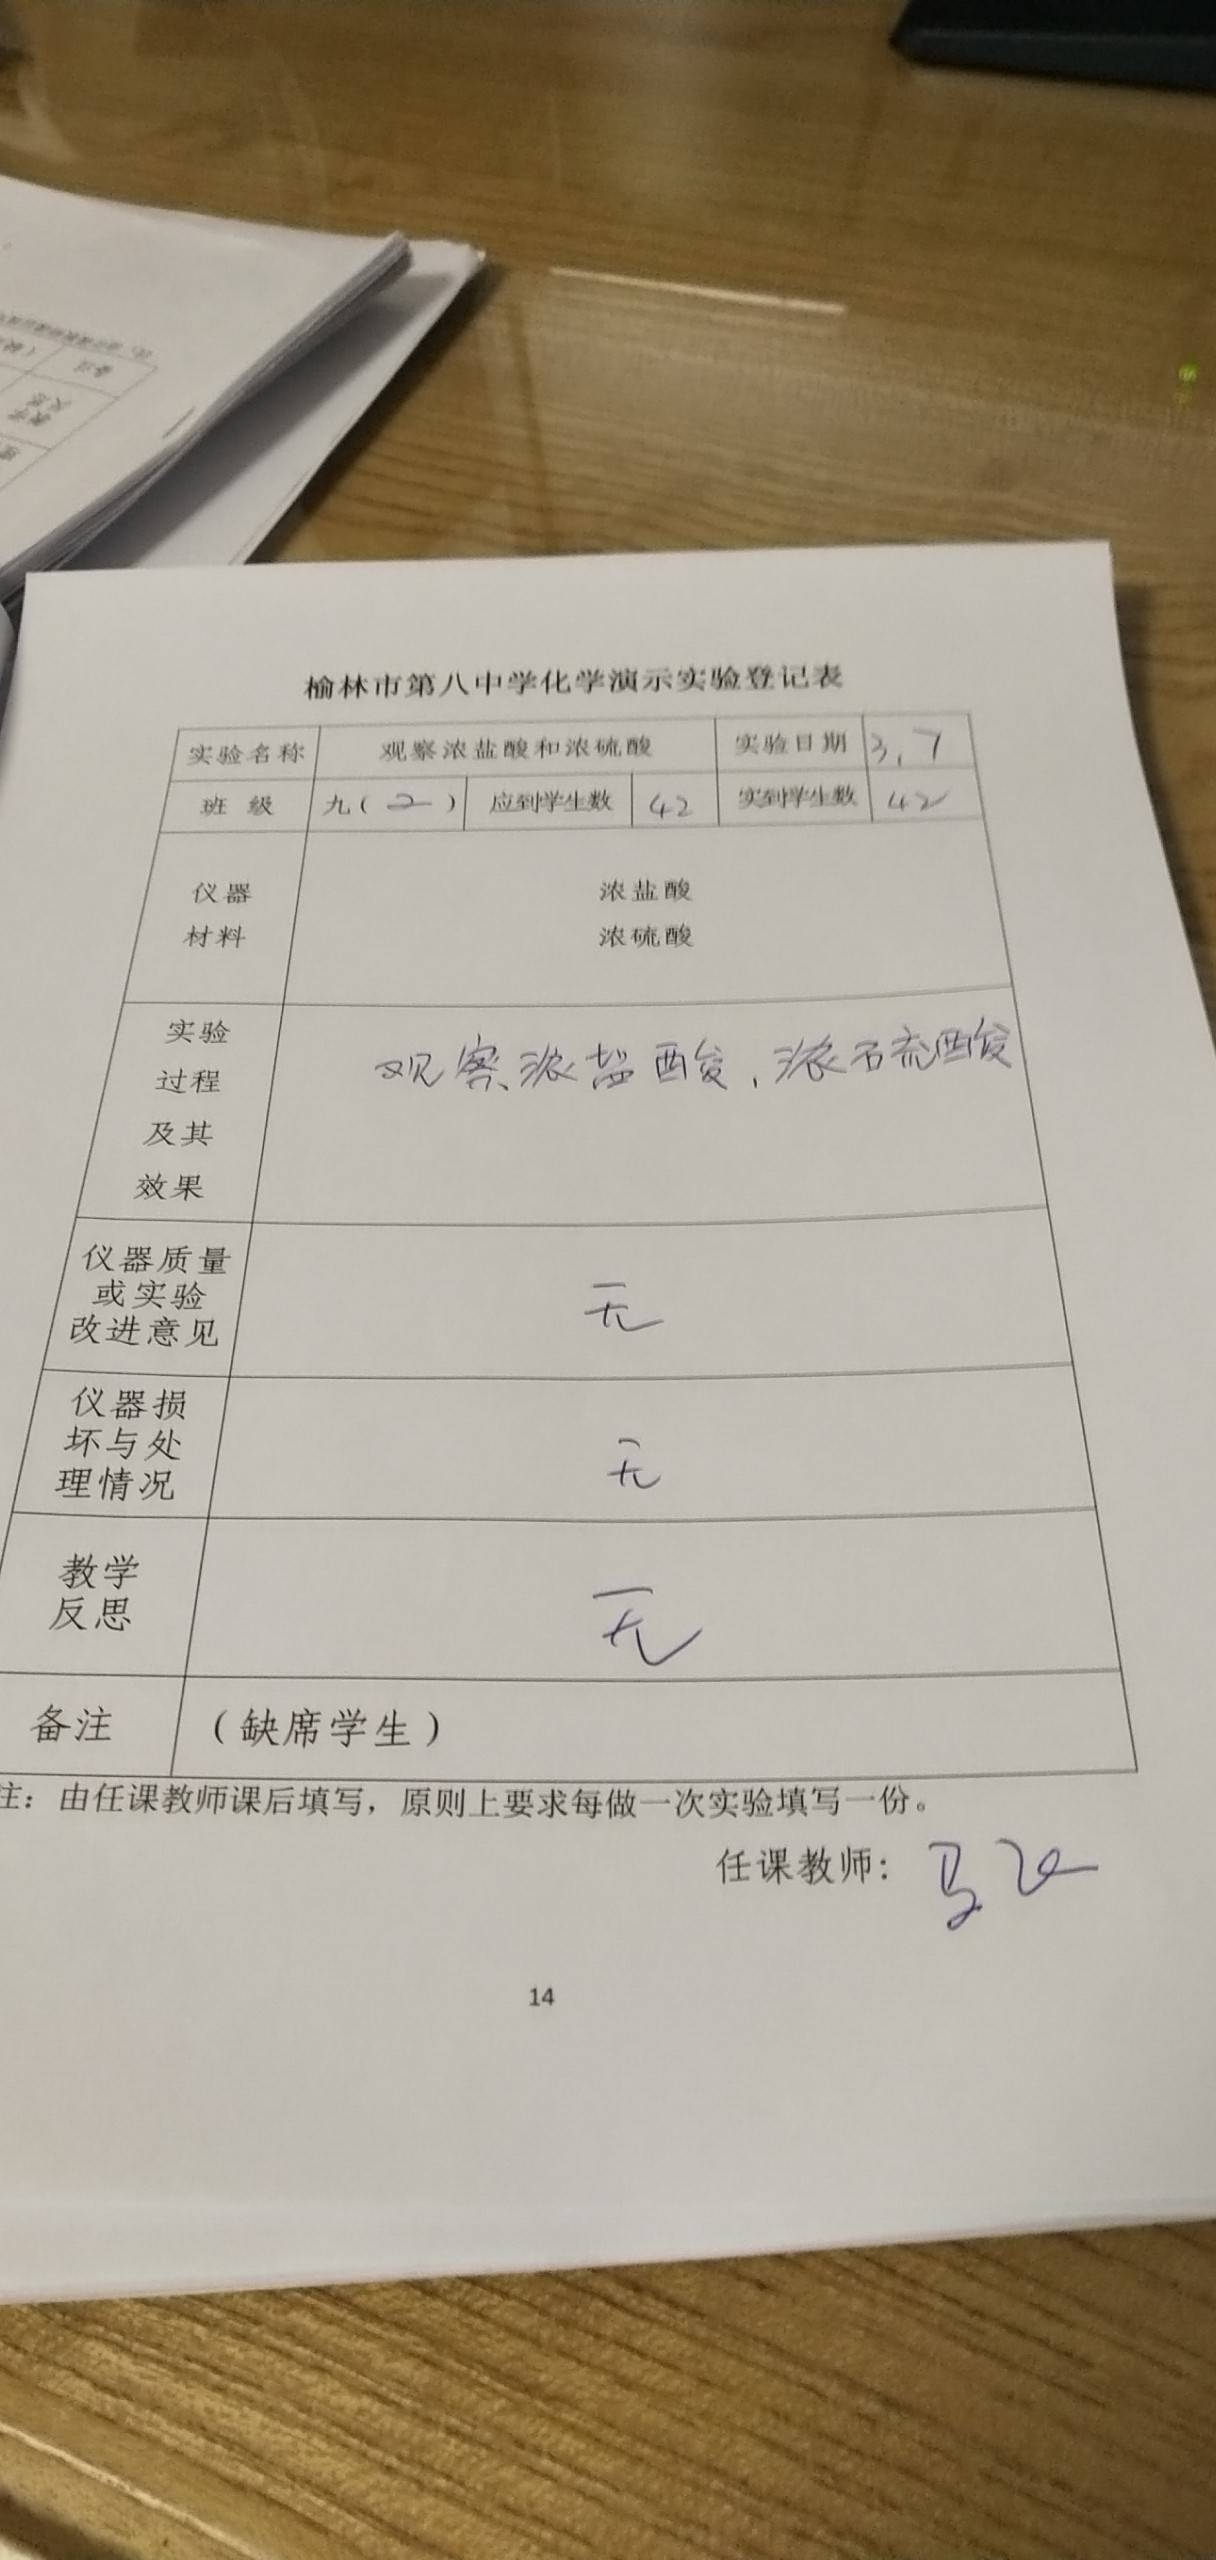 榆林市第八中学化学演示实验登记表
实验名称 观察浓盐酸和浓硫酸 实验日期 3.7
班 级 九(二) 应到学生数 42 实到学生数 42
仪器
材料
浓盐酸
浓硫酸
实验
过程
及其
效果
观察浓盐酸,浓硫酸
仪器质量
或实验
改进意见
无
仪器损
坏与处
理情况
无
教学
反思
无
备注 (缺席学生)
注:由任课教师课后填写,原则上要求每做一次实验填写一份。
任课教师: 马
14